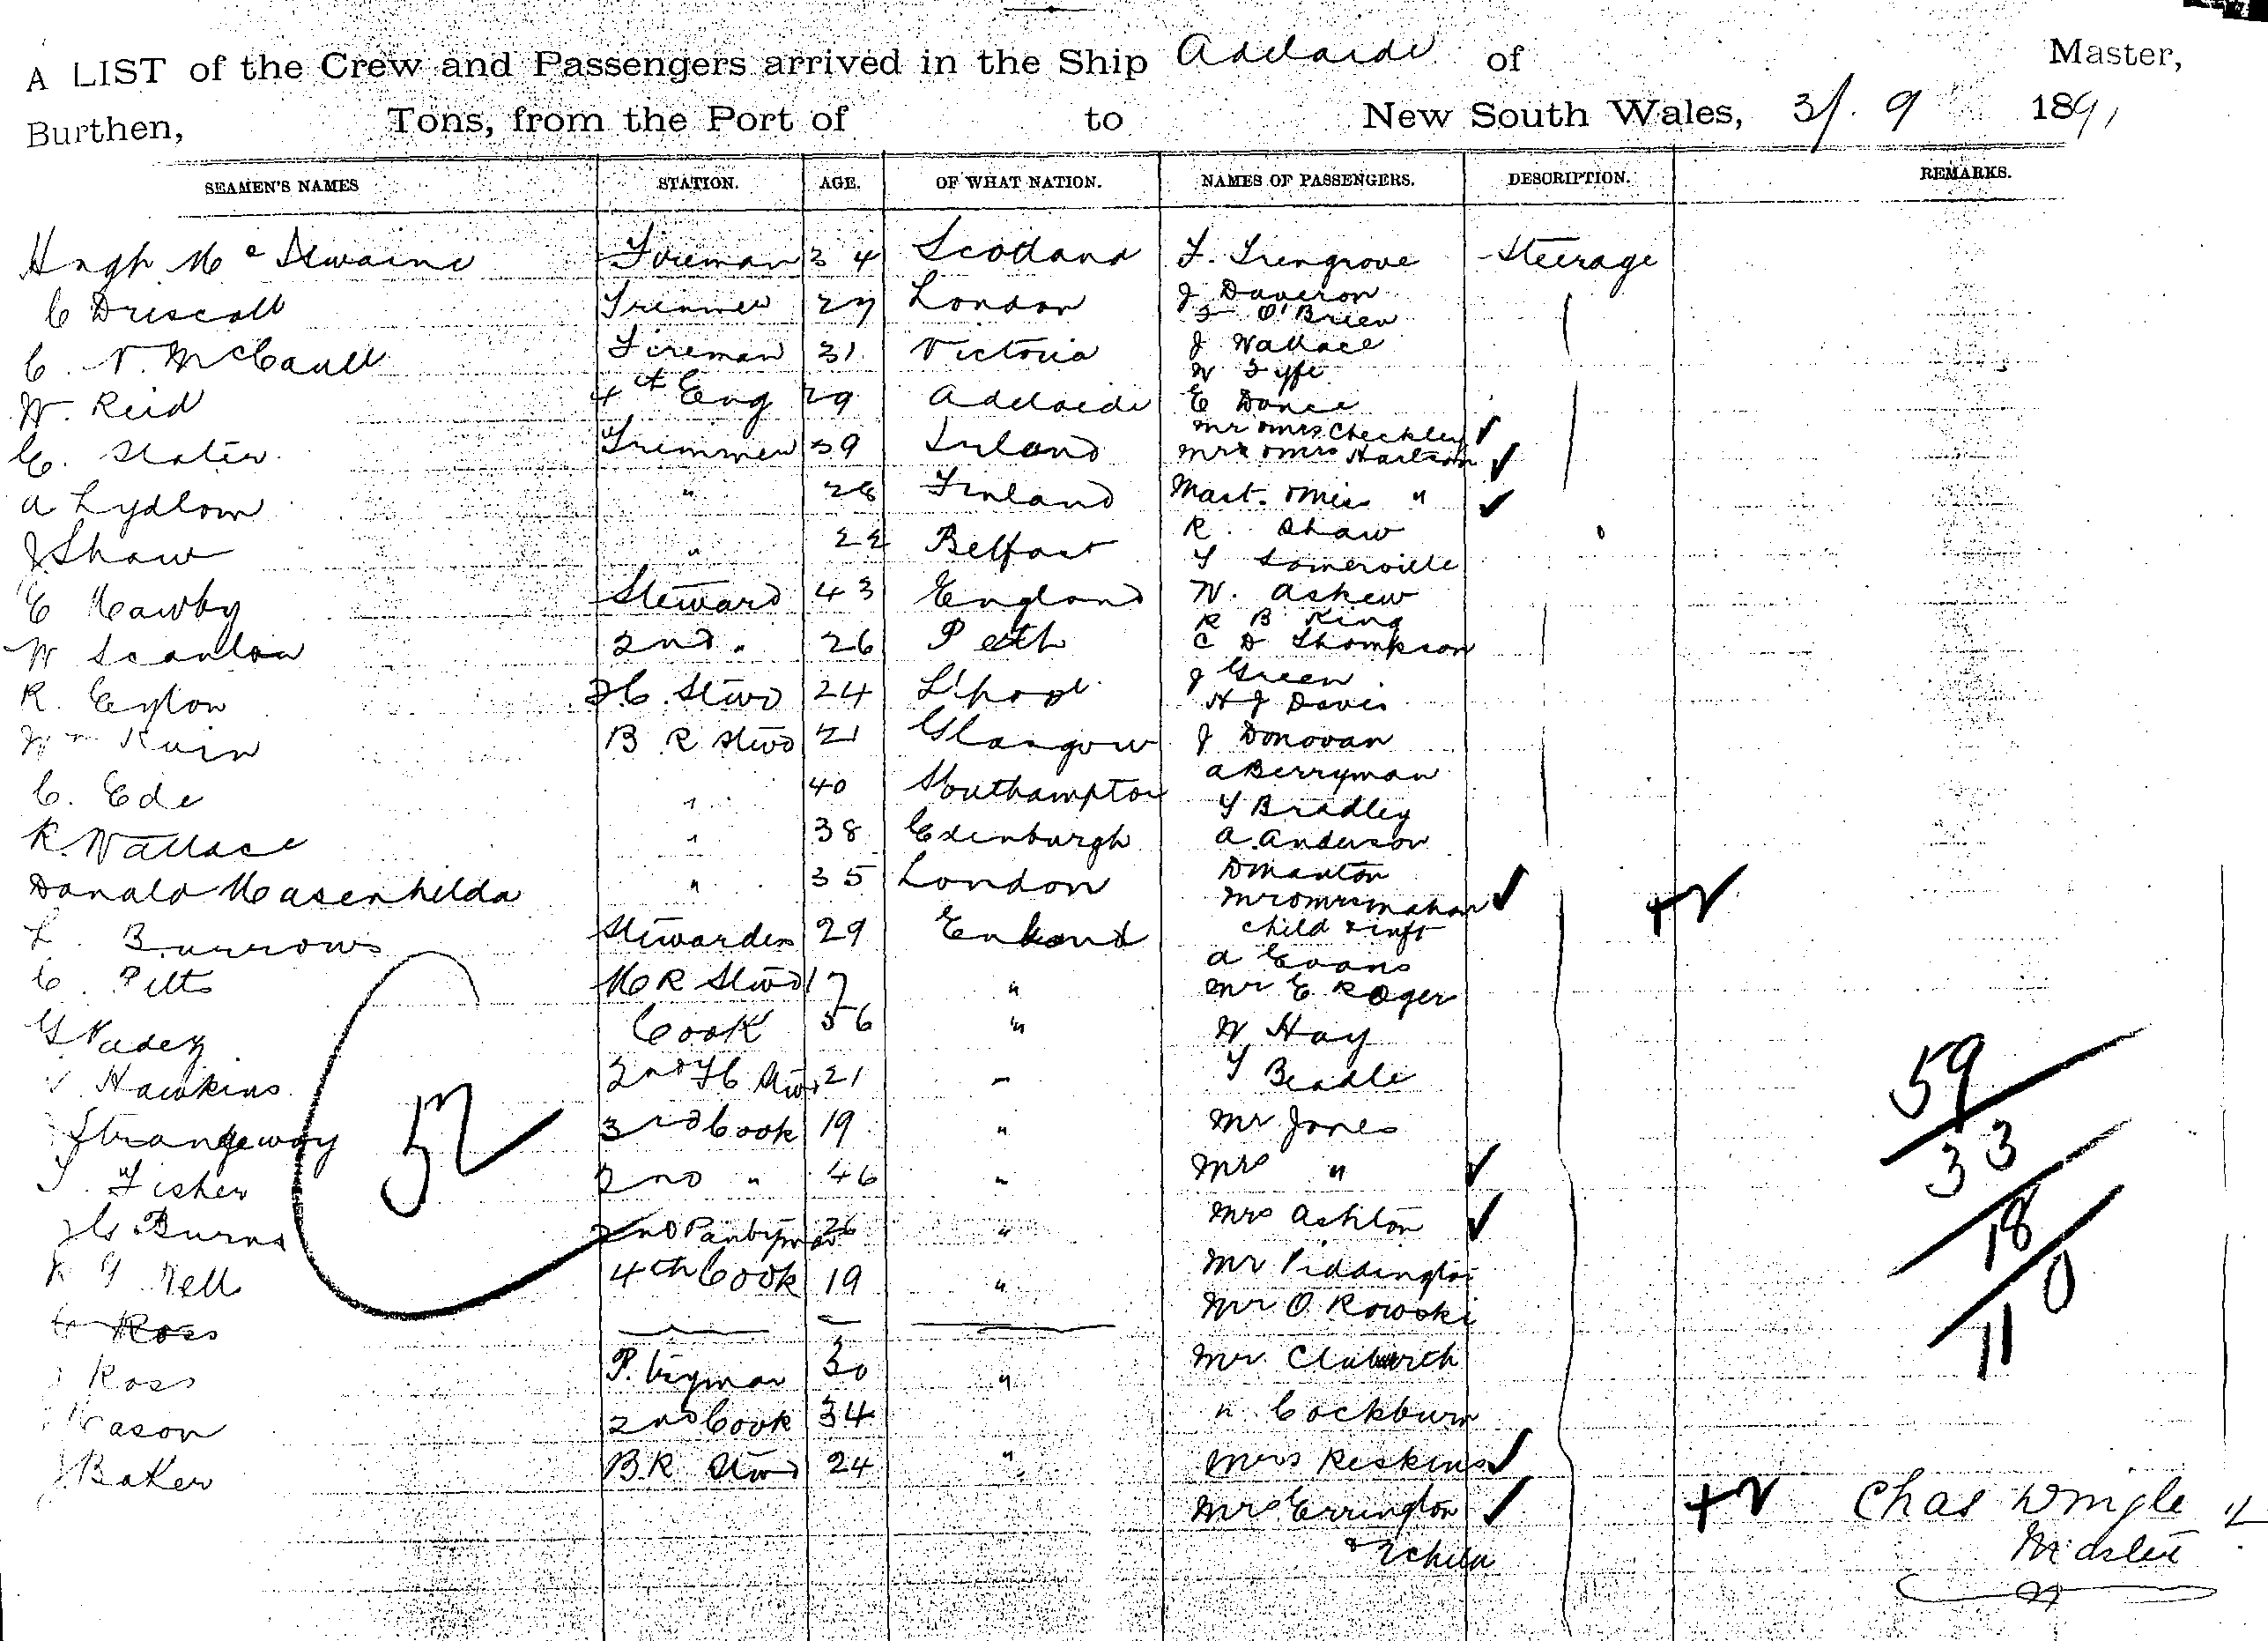 A LIST of the Crew and Passengers arrived in the Ship Adelaide of Master,
Burthen, Tons, from the Port of to New South Wales, 3/. 9 1891
SEAMEN'S NAMES STATION. AGE. OF WHAT NATION. NAMES OF PASSENGERS. DESCRIPTION. REMARKS.
Hugh Mc Fireman 34 Scotland F. Trengrove Steerage
C Driscoll Trimmer 27 London J Daveron
O'Brien
C. McCaull Fireman 31 Victoria J Wallace
W Fyfe
W. Reid 4th Eng 29 Adelaide E Dance
Mr & Mrs Checkley
C. Slater Trimmer 39 Ireland Mr & Mrs Harrison
A Lydlow " 28 Finland Mast. & Miss "
R. Shaw
J Shaw " 22 Belfast T Somerville
E Mawby Steward 43 England W. Askew
R B King
W Scanlon 2nd " 26 Perth C D Thompson
J Green
R. Eyton F.C. Stwd 24 L'pool H J Davis
Wm B R Stwd 21 Glasgow J Donovan
A Berryman
C. Ede " 40 Southampton T Bradley
R. Wallace " 38 Edinburgh A. Anderson
D Manton
Donald " 35 London Mr & Mrs Mahar
child & inft
L. Burrows Stewardess 29 England
A Evans
C. Pitts M R Stwd 17 " Mr E Roger
Cook 56 " W Hay
Hawkins 2nd F C Stwd 21 " T Beadle
Strangeway 3rd Cook 19 " Mr Jones
T. Fisher 2nd " 46 " Mrs "
52
59
33
18
0
11
Burns 2nd Pantryman 26 " Mrs Ashton
Nell 4th Cook 19 " Mr Piddington
Ross Mr O. Rowski
Ross P. tryman 30 " Mr.
ason 2nd Cook 34 " Cockburn
J. Baker B.R Stwd 24 " Mrs Reskins
Mrs Errington
& 2 child
Chas
Master